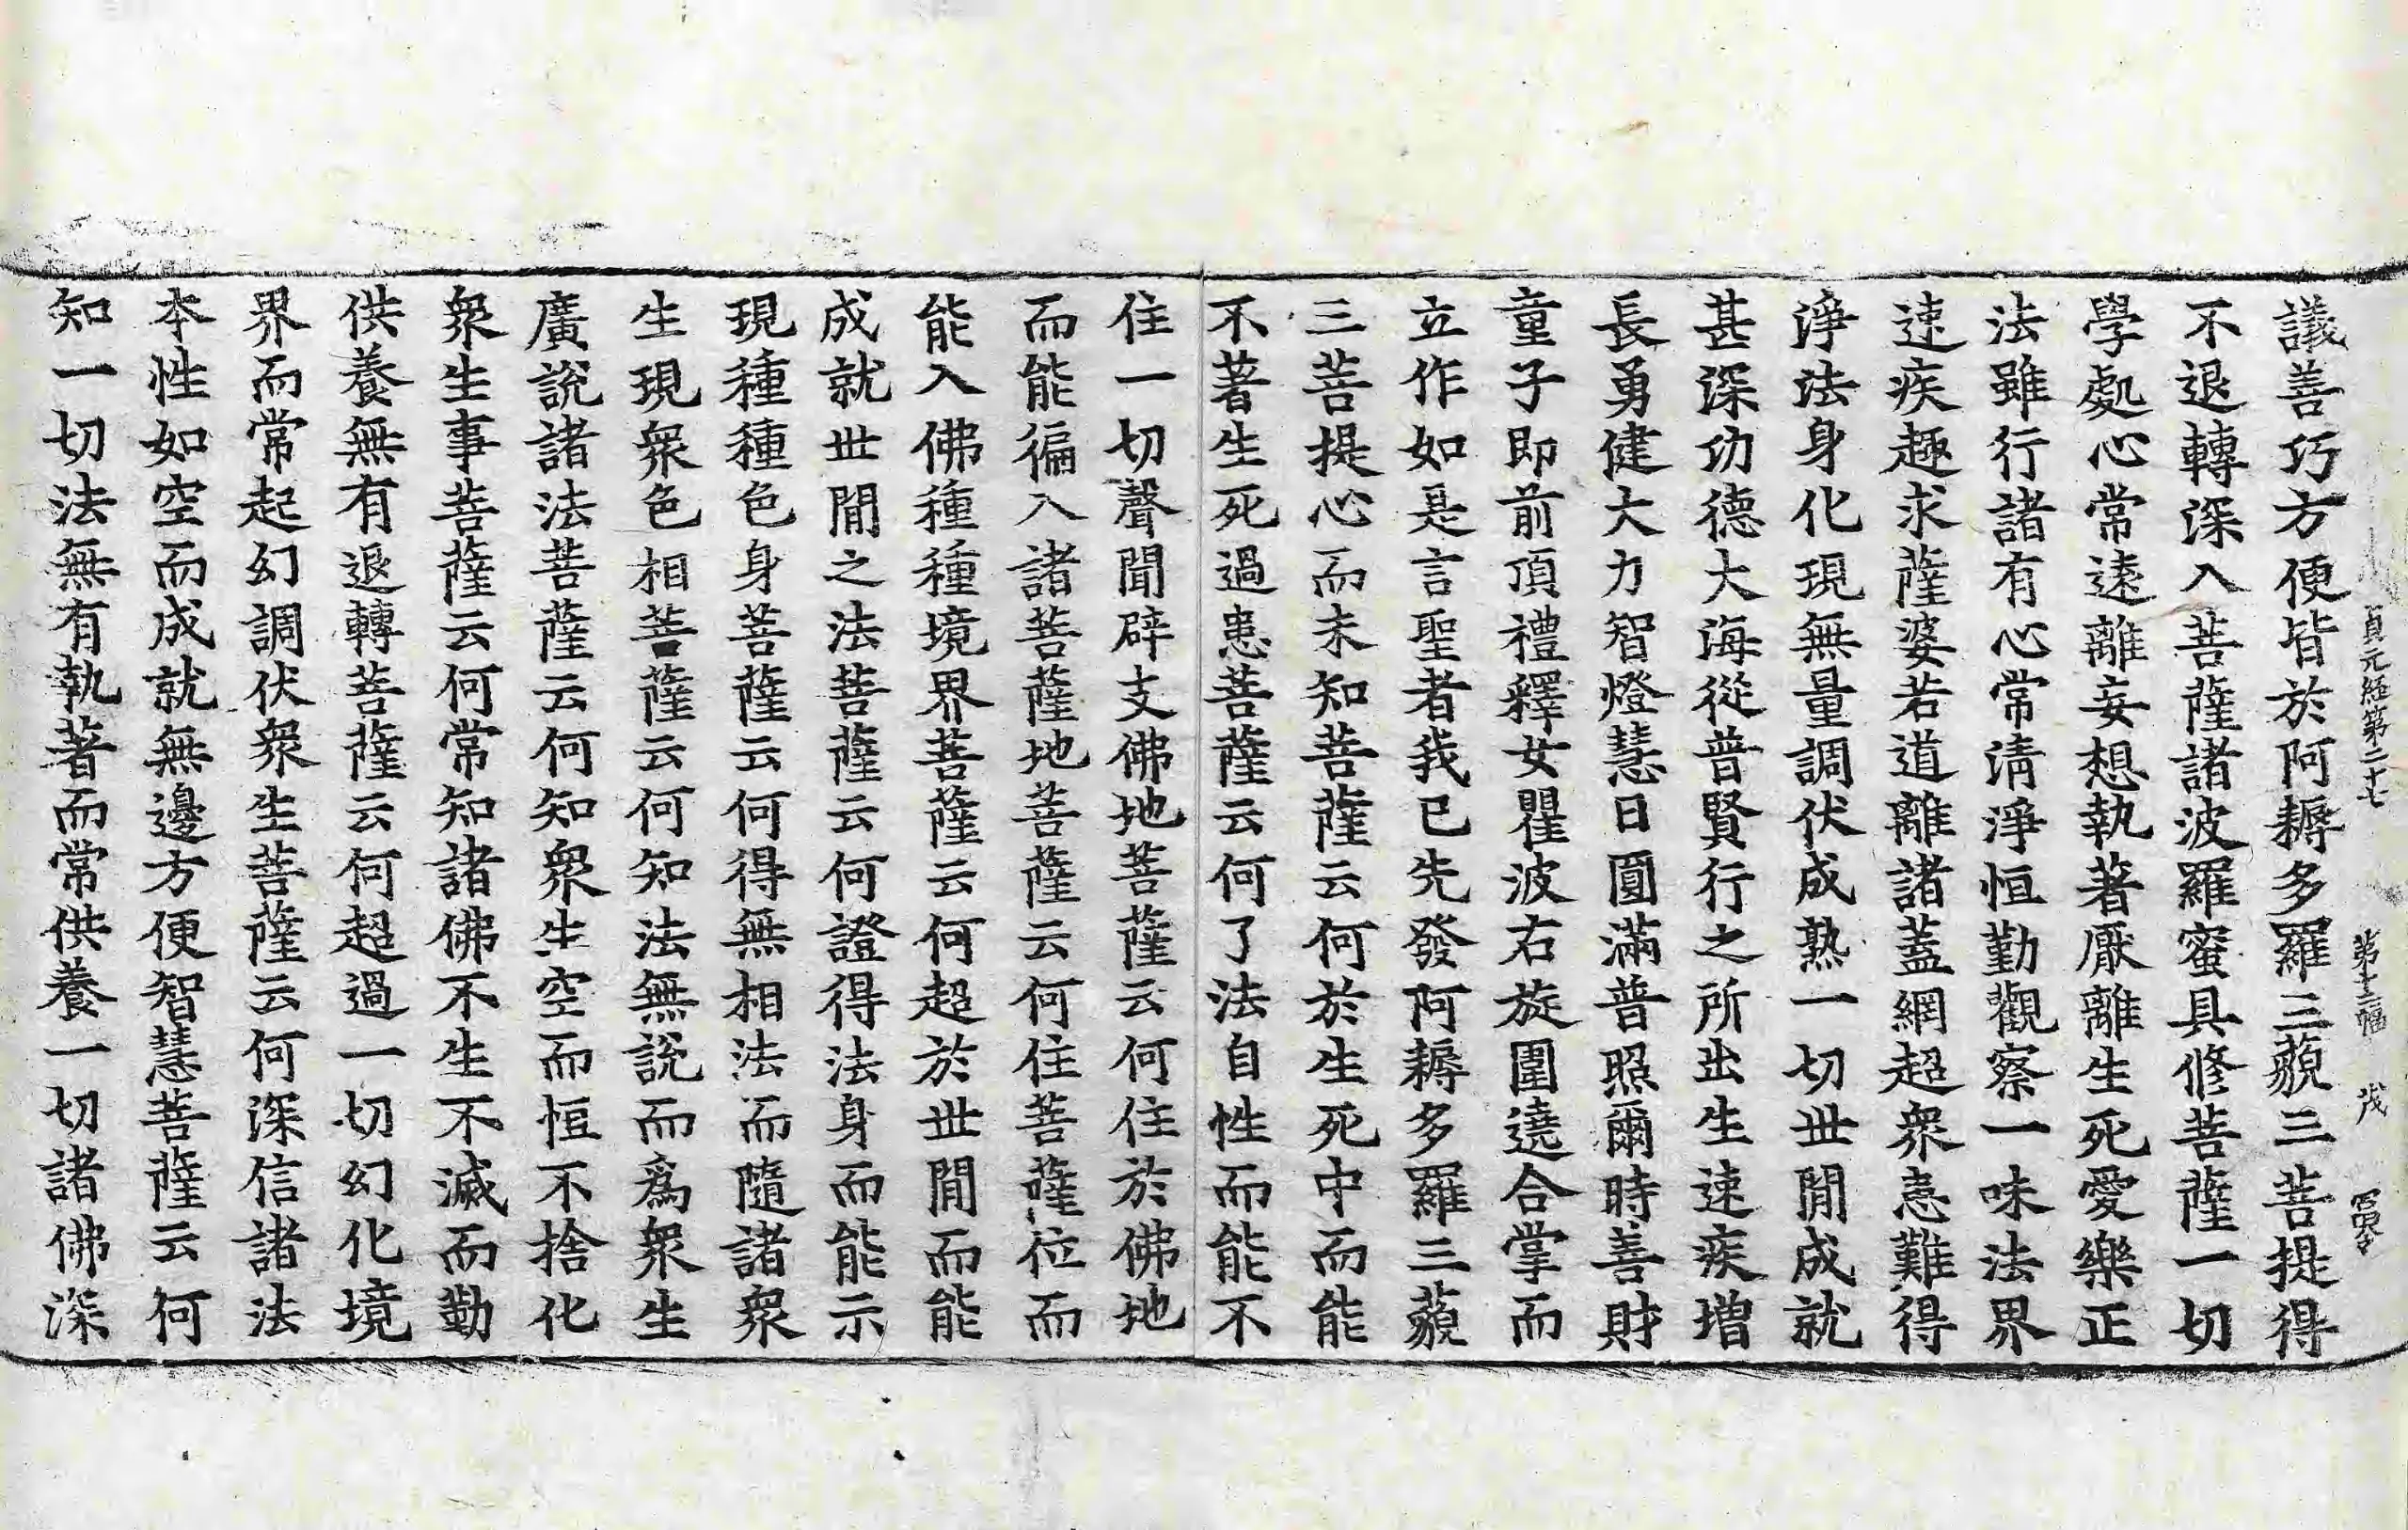 貞元經第二十七 第十二幅 茂
議善巧方便皆於阿耨多羅三藐三菩提得
不退轉深入菩薩諸波羅蜜具修菩薩一切
學處心常遠離妄想執著厭離生死愛樂正
法雖行諸有心常清淨恒勤觀察一味法界
速疾趣求薩婆若道離諸蓋網超衆恚難得
淨法身化現無量調伏成熟一切世閒成就
甚深功德大海從普賢行之所出生速疾增
長勇健大力智燈慧日圓滿普照爾時善財
童子即前頂禮釋女瞿波右旋圍遶合掌而
立作如是言聖者我已先發阿耨多羅三藐
三菩提心而未知菩薩云何於生死中而能
不著生死過患菩薩云何了法自性而能不
住一切聲聞辟支佛地菩薩云何住於佛地
而能徧入諸菩薩地菩薩云何住菩薩位而
能入佛種種境界菩薩云何超於世閒而能
成就世閒之法菩薩云何證得法身而能示
現種種色身菩薩云何得無相法而隨諸衆
生現衆色相菩薩云何知法無說而爲衆生
廣說諸法菩薩云何知衆生空而恒不捨化
衆生事菩薩云何常知諸佛不生不滅而勤
供養無有退轉菩薩云何超過一切幻化境
界而常起幻調伏衆生菩薩云何深信諸法
本性如空而成就無邊方便智慧菩薩云何
知一切法無有執著而常供養一切諸佛深